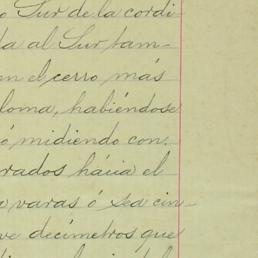 Sur de la cordi
da al Sur tam-
en el cerro más
loma, habiéndose
ó midiendo con
rados hácia el
varas ó sea cin-
ve decímetros que